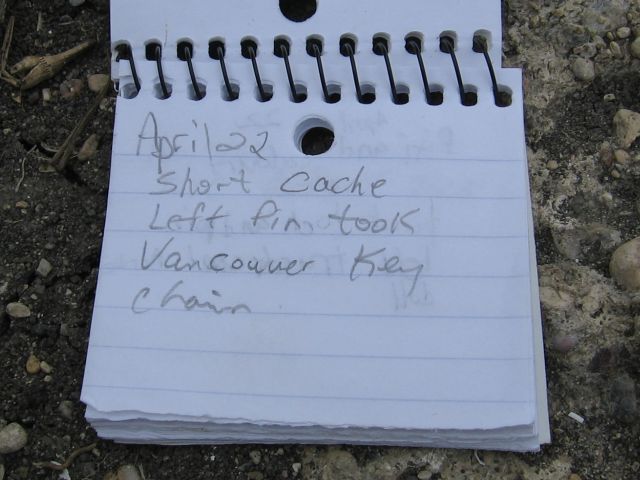 April 22
Short Cache
Left Pin, took
Vancouver Key
chain